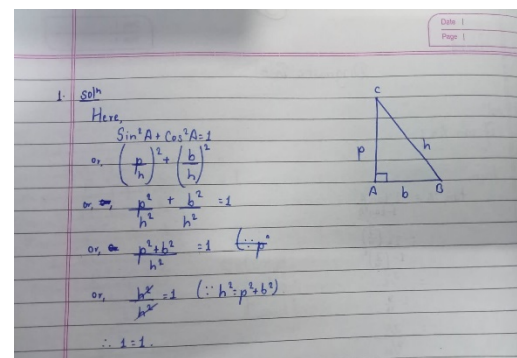 Date
Page
1. Solⁿ
Here,
Sin²A + Cos²A = 1
or, (p/h)² + (b/h)²
or, p²/h² + b²/h² = 1
or, (p²+b²)/h² = 1 (∵ p²
or, h²/h² = 1 (∵ h² = p²+b²)
∴ 1 = 1.
C
p
h
A
b
B